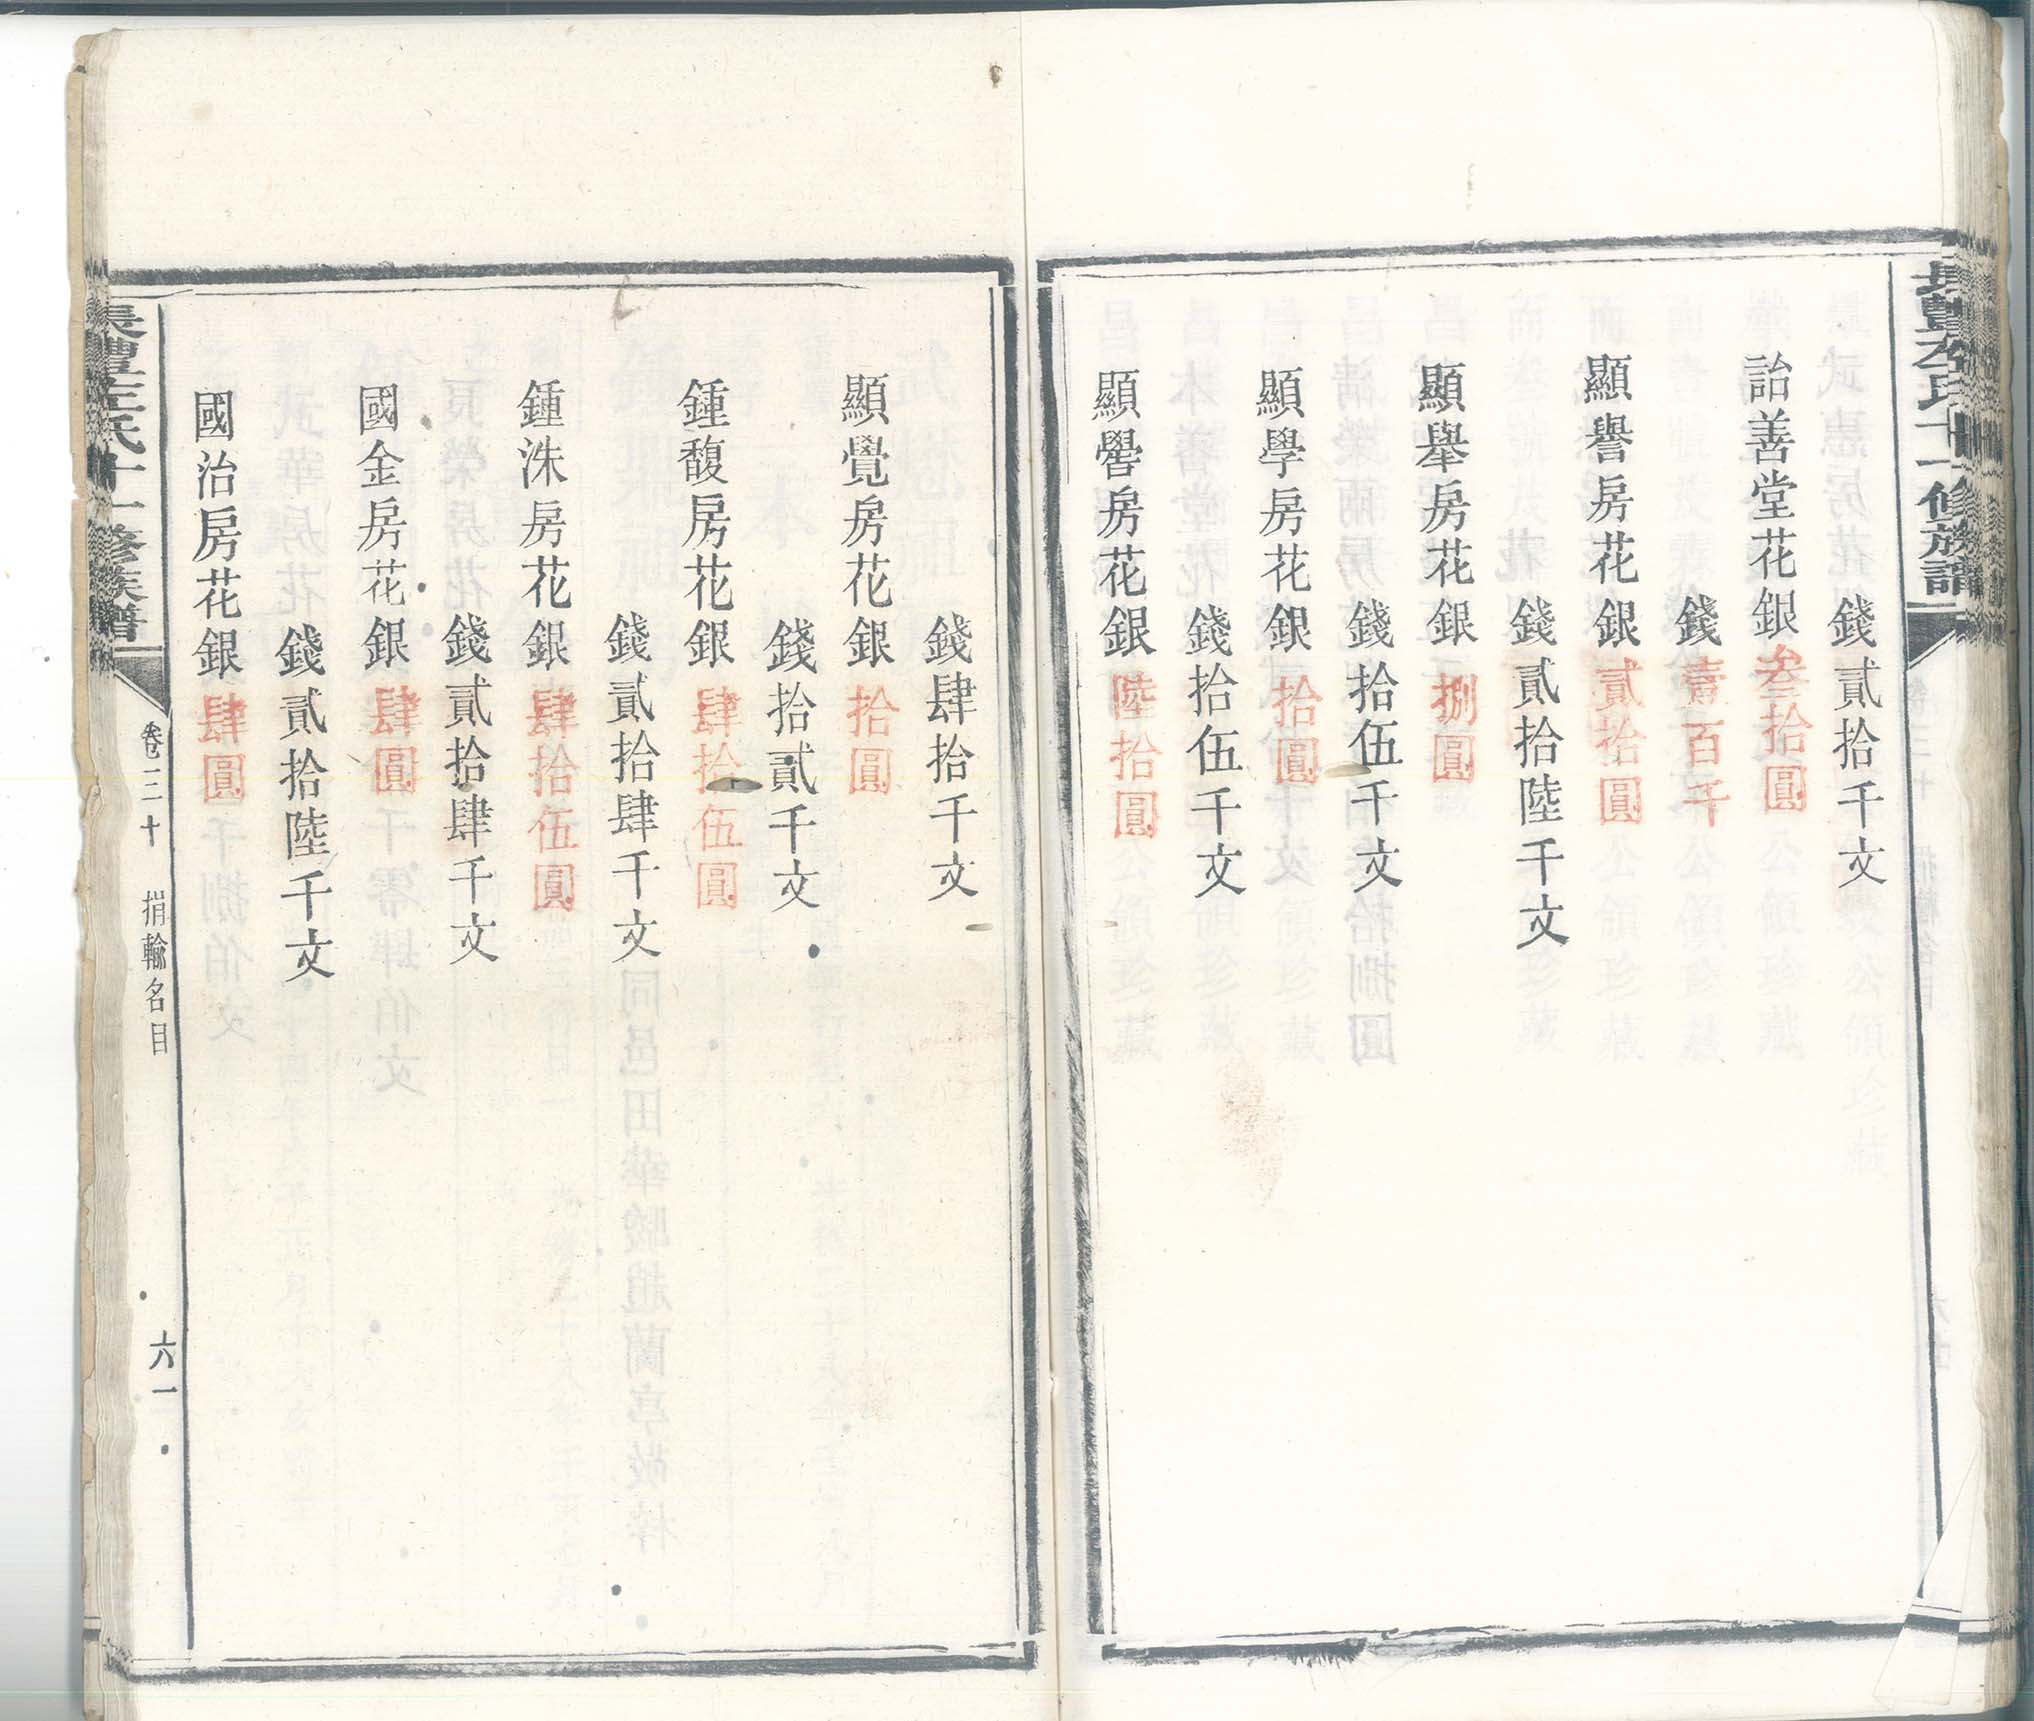 長豐左氏十一修族譜
錢貳拾千文
詒善堂花銀叁拾圓
錢壹百千
顯譽房花銀貳拾圓
錢貳拾陸千文
顯舉房花銀捌圓
錢拾伍千文
顯學房花銀拾圓
錢拾伍千文
顯嚳房花銀陸拾圓
錢肆拾千文
顯覺房花銀拾圓
錢拾貳千文
鍾馥房花銀肆拾伍圓
錢貳拾肆千文
鍾洙房花銀肆拾伍圓
錢貳拾肆千文
國金房花銀肆圓
錢貳拾陸千文
國治房花銀肆圓
長豐左氏十一修族譜 卷三十 捐輸名目 六一